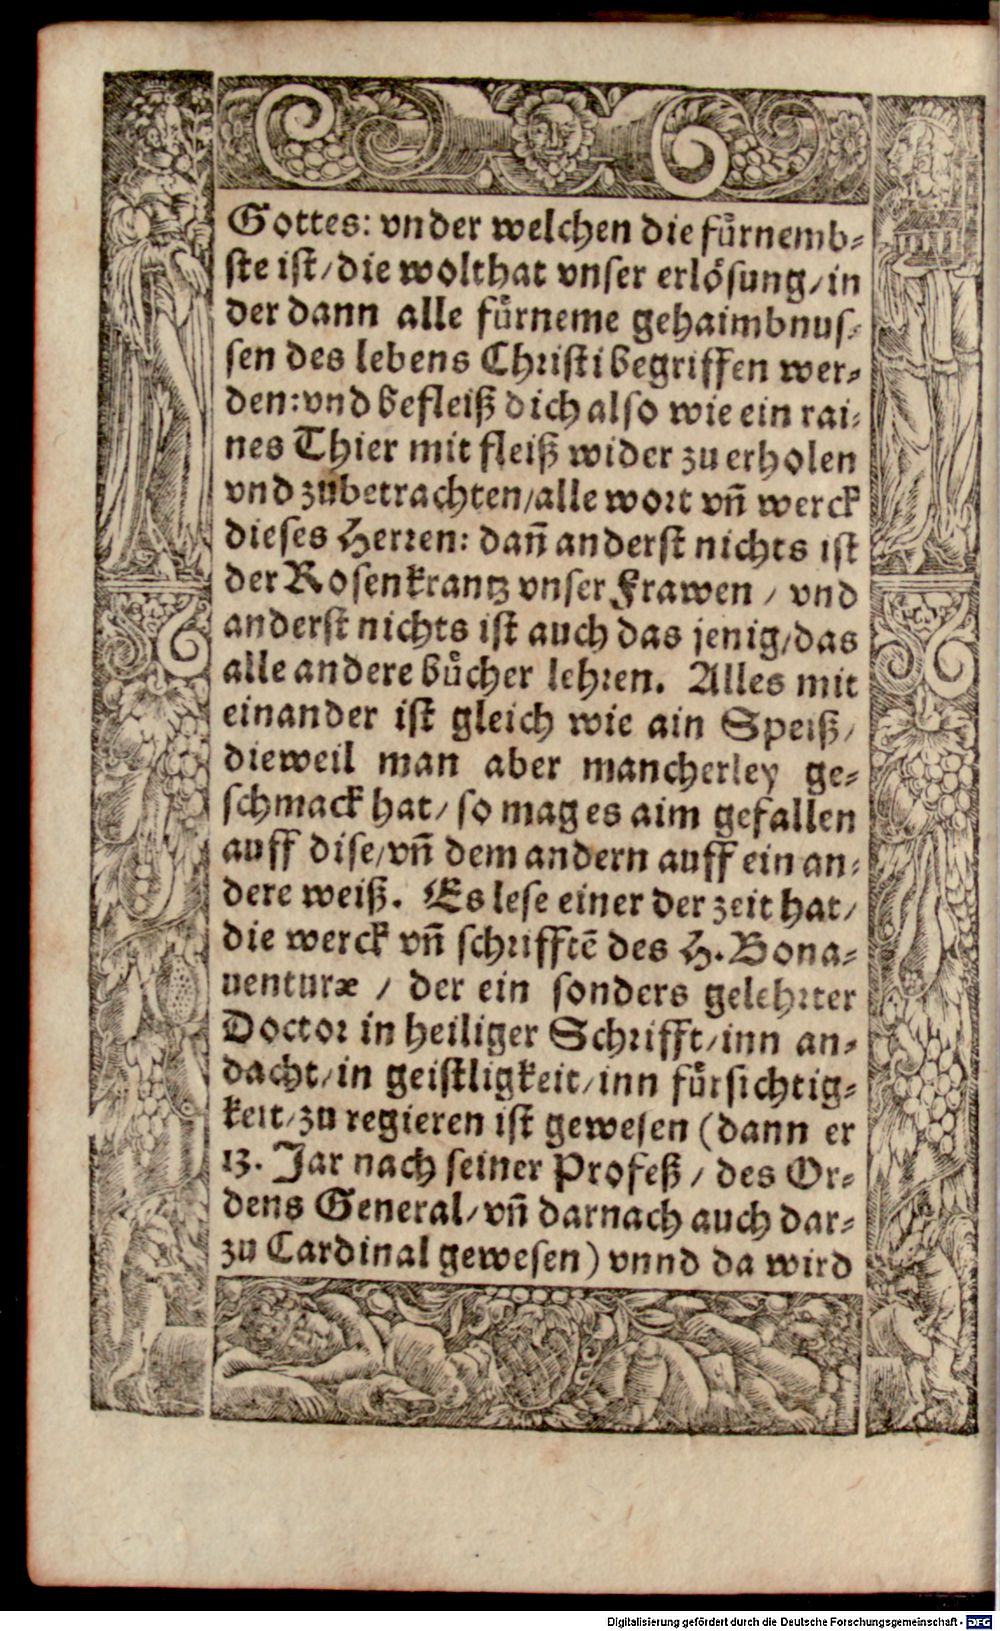 Gottes: vnder welchen die fuͤrnemb⸗
ste ist/die wolthat vnser erloͤsung/in
der dann alle fuͤrneme gehaimbnus⸗
sen des lebens Christi begriffen wer⸗
den:vnd befleiß dich also wie ein rai⸗
nes Thier mit fleiß wider zu erholen
vnd zůbetrachten/alle wort vñ werck
dieses Herren: dañ anderst nichts ist
der Rosenkrantz vnser Frawen / vnd
anderst nichts ist auch das jenig/das
alle andere buͤcher lehren. Alles mit
einander ist gleich wie ain Speiß/
dieweil man aber mancherley ge⸗
schmack hat/ so mag es aim gefallen
auff dise/vñ dem andern auff ein an⸗
dere weiß. Es lese einer der zeit hat/
die werck vñ schrifftẽ des H. Bona⸗
uenturæ / der ein sonders gelehrter
Doctor in heiliger Schrifft/inn an⸗
dacht/in geistligkeit/inn fuͤrsichtig⸗
keit/zu regieren ist gewesen (dann er
13. Jar nach seiner Profeß / des Or⸗
dens General/vñ darnach auch dar⸗
zu Cardinal gewesen) vnnd da wird
Digitalisierung gefördert durch die Deutsche Forschungsgemeinschaft - DFG